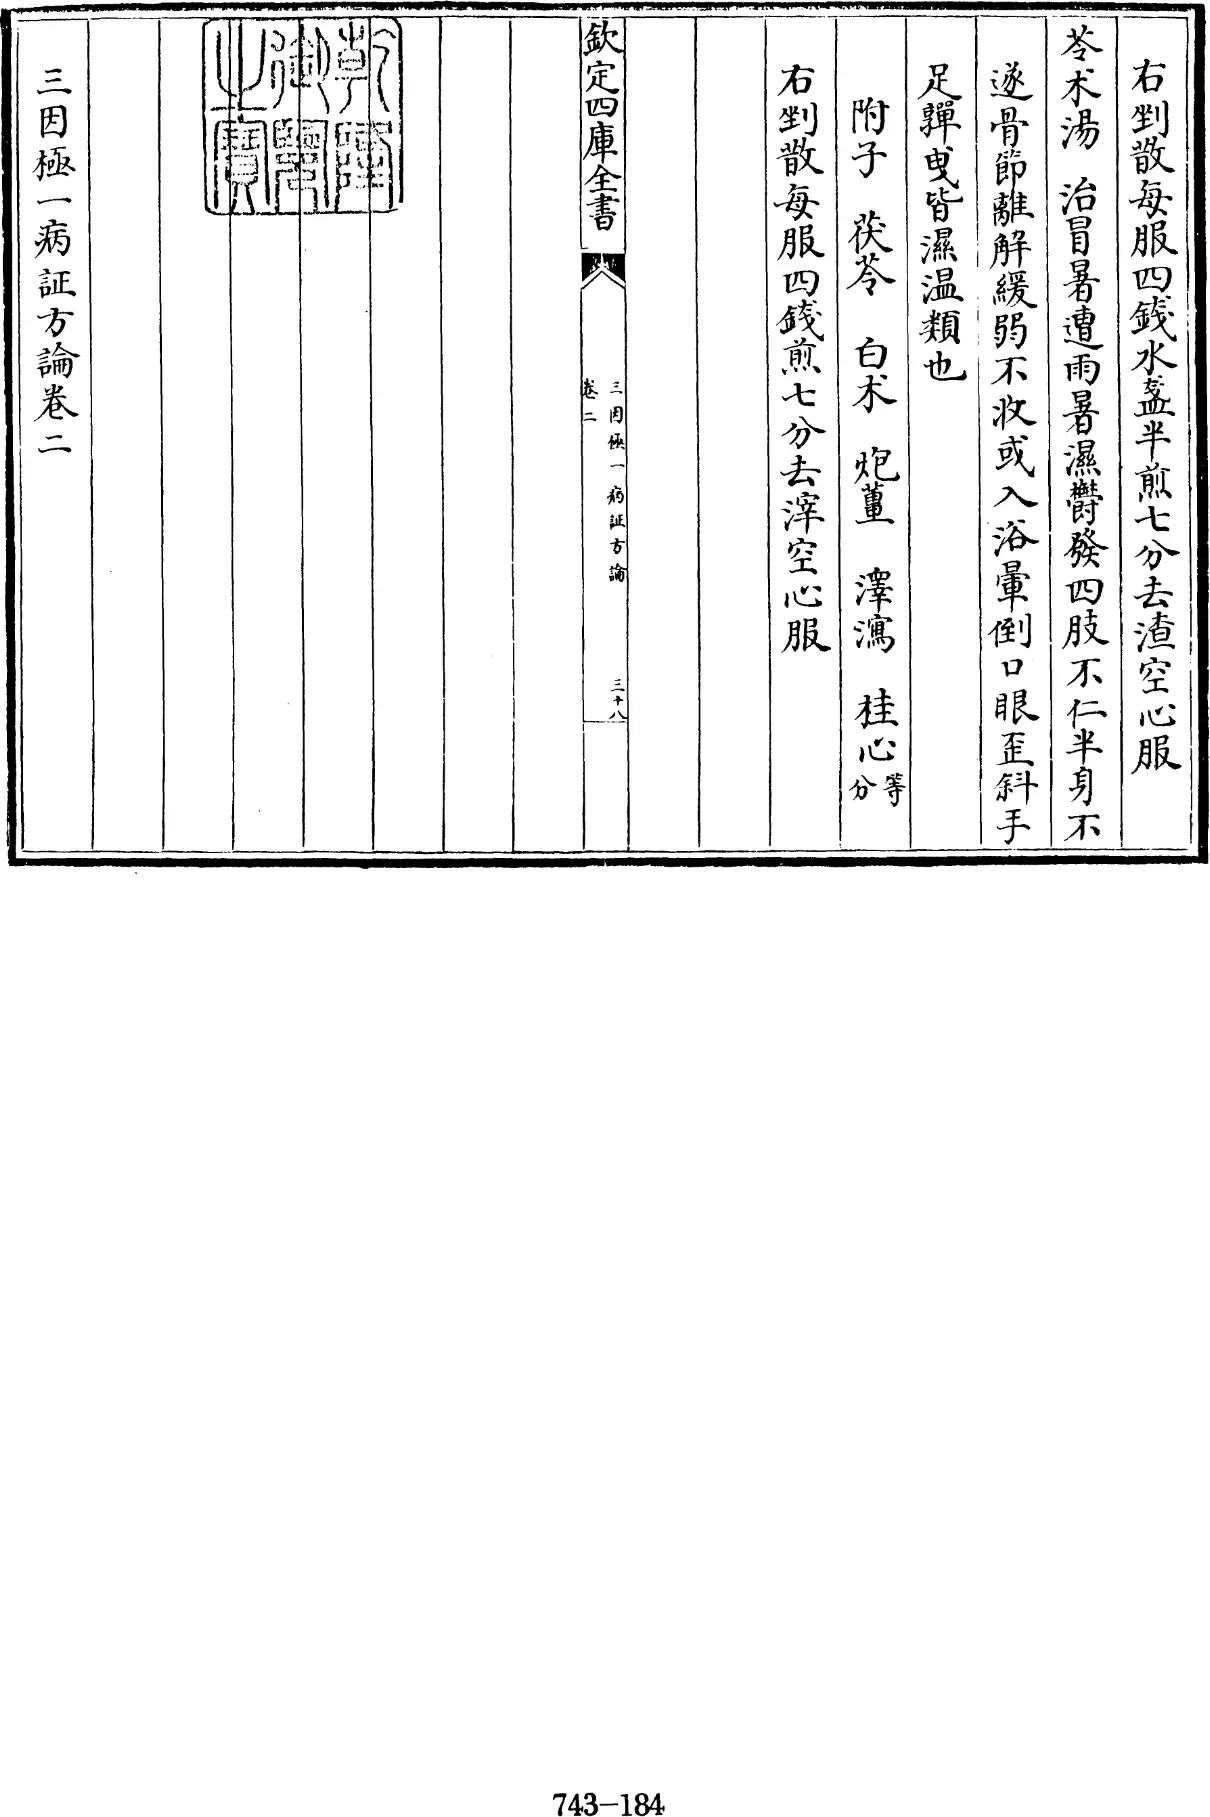 右剉散每服四錢水盞半煎七分去渣空心服
苓术湯　治冒暑遭雨暑濕鬱發四肢不仁半身不
遂骨節離解緩弱不收或入浴暈倒口眼歪斜手
足嚲曳皆濕温類也
附子　茯苓　白术　炮薑　澤瀉　桂心等分
右剉散每服四錢煎七分去滓空心服
欽定四庫全書
三因極一病証方論
卷二
三十八
乾隆御覽之寳
三因極一病証方論卷二
743-184